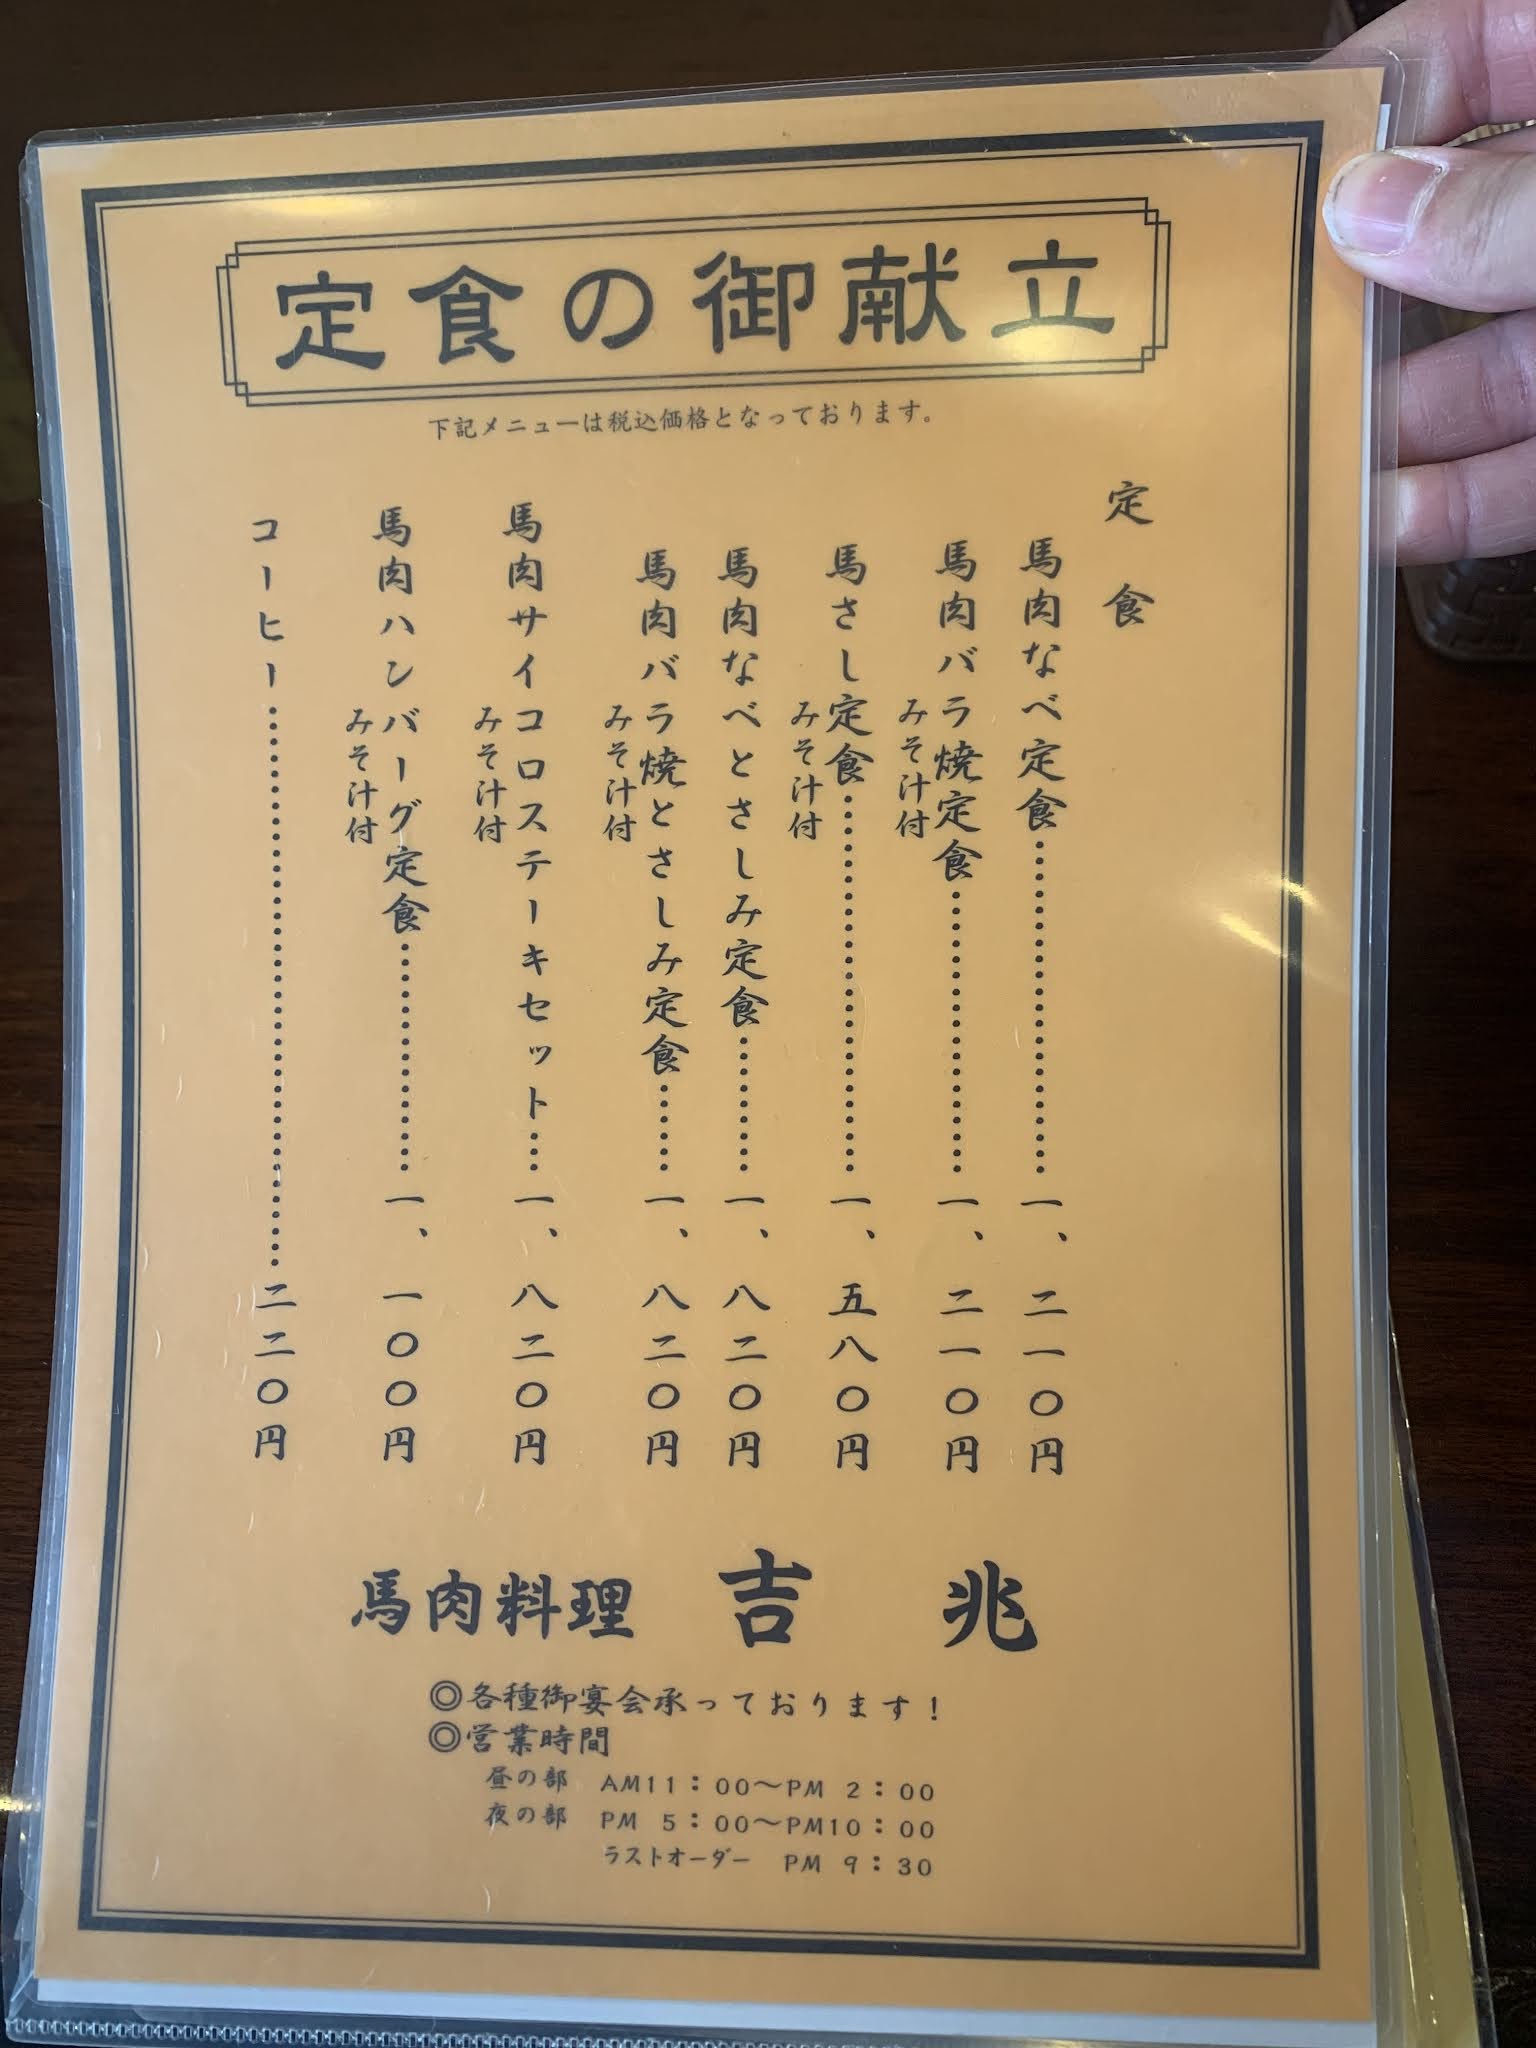 定食の御献立
下記メニューは税込価格となっております。
定食
馬肉なべ定食……………………一、二一〇円
馬肉バラ焼定食…………………一、二一〇円
みそ汁付
馬さし定食………………………一、五八〇円
みそ汁付
馬肉なべとさしみ定食…………一、八二〇円
馬肉バラ焼とさしみ定食………一、八二〇円
みそ汁付
馬肉サイコロステーキセット…一、八二〇円
みそ汁付
馬肉ハンバーグ定食……………一、一〇〇円
みそ汁付
コーヒー…………………………………二二〇円
馬肉料理 吉兆
◎各種御宴会承っております！
◎営業時間
昼の部 AM11：00〜PM 2：00
夜の部 PM 5：00〜PM10：00
ラストオーダー PM 9：30